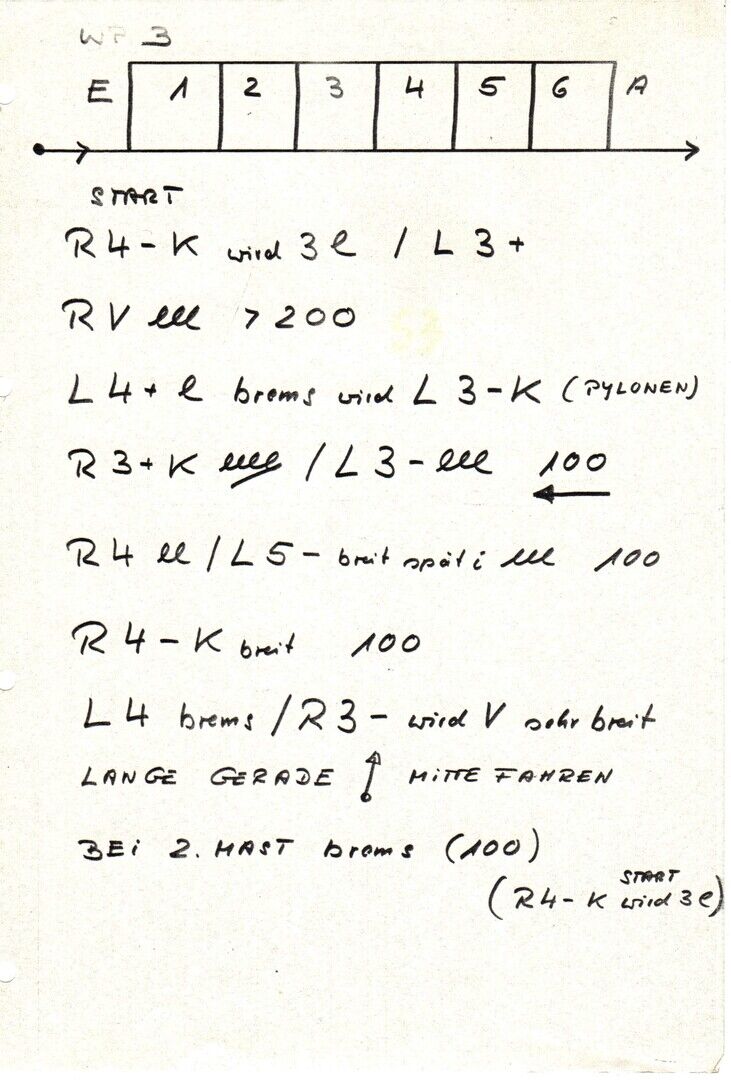 WP 3
E 1 2 3 4 5 6 A
START
R4-K wird 3 l / L 3+
RV lll > 200
L 4+ l brems wird L 3-K (PYLONEN)
R 3+ K llll / L 3- lll 100
R4 ll / L 5- breit spät i lll 100
R 4-K breit 100
L 4 brems / R 3- wird V sehr breit
LANGE GERADE MITTE FAHREN
BEI 2. MAST brems (100)
START
(R4-K wird 3 l)